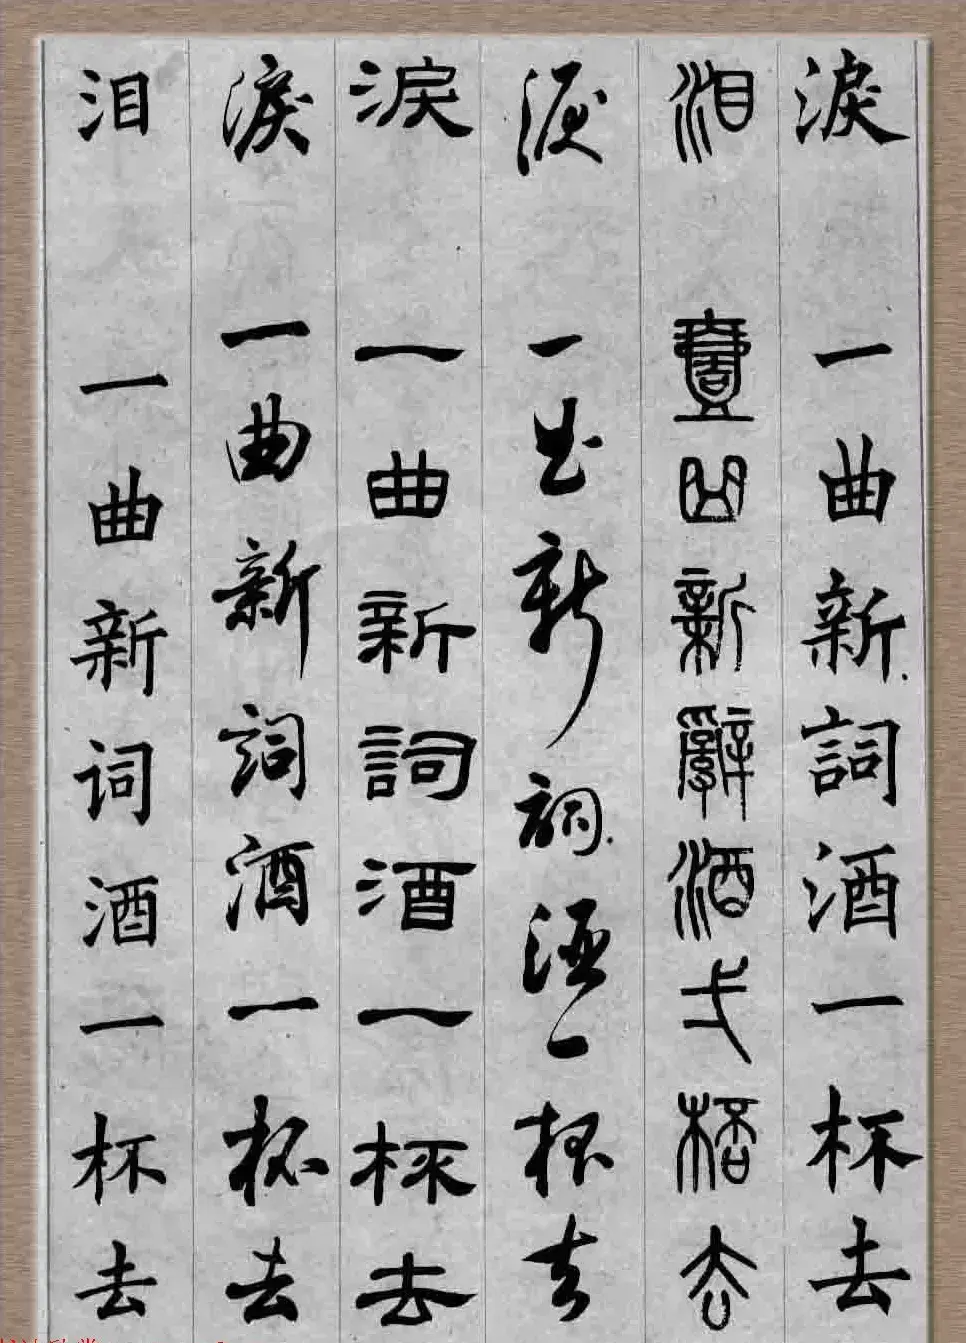 淚 一曲新詞酒一杯去
泪 壹曲新辭酒弌桮去
淚 一曲新詞酒一杯去
淚 一曲新詞酒一杯去
淚 一曲新詞酒一杯去
泪 一曲新词酒一杯去